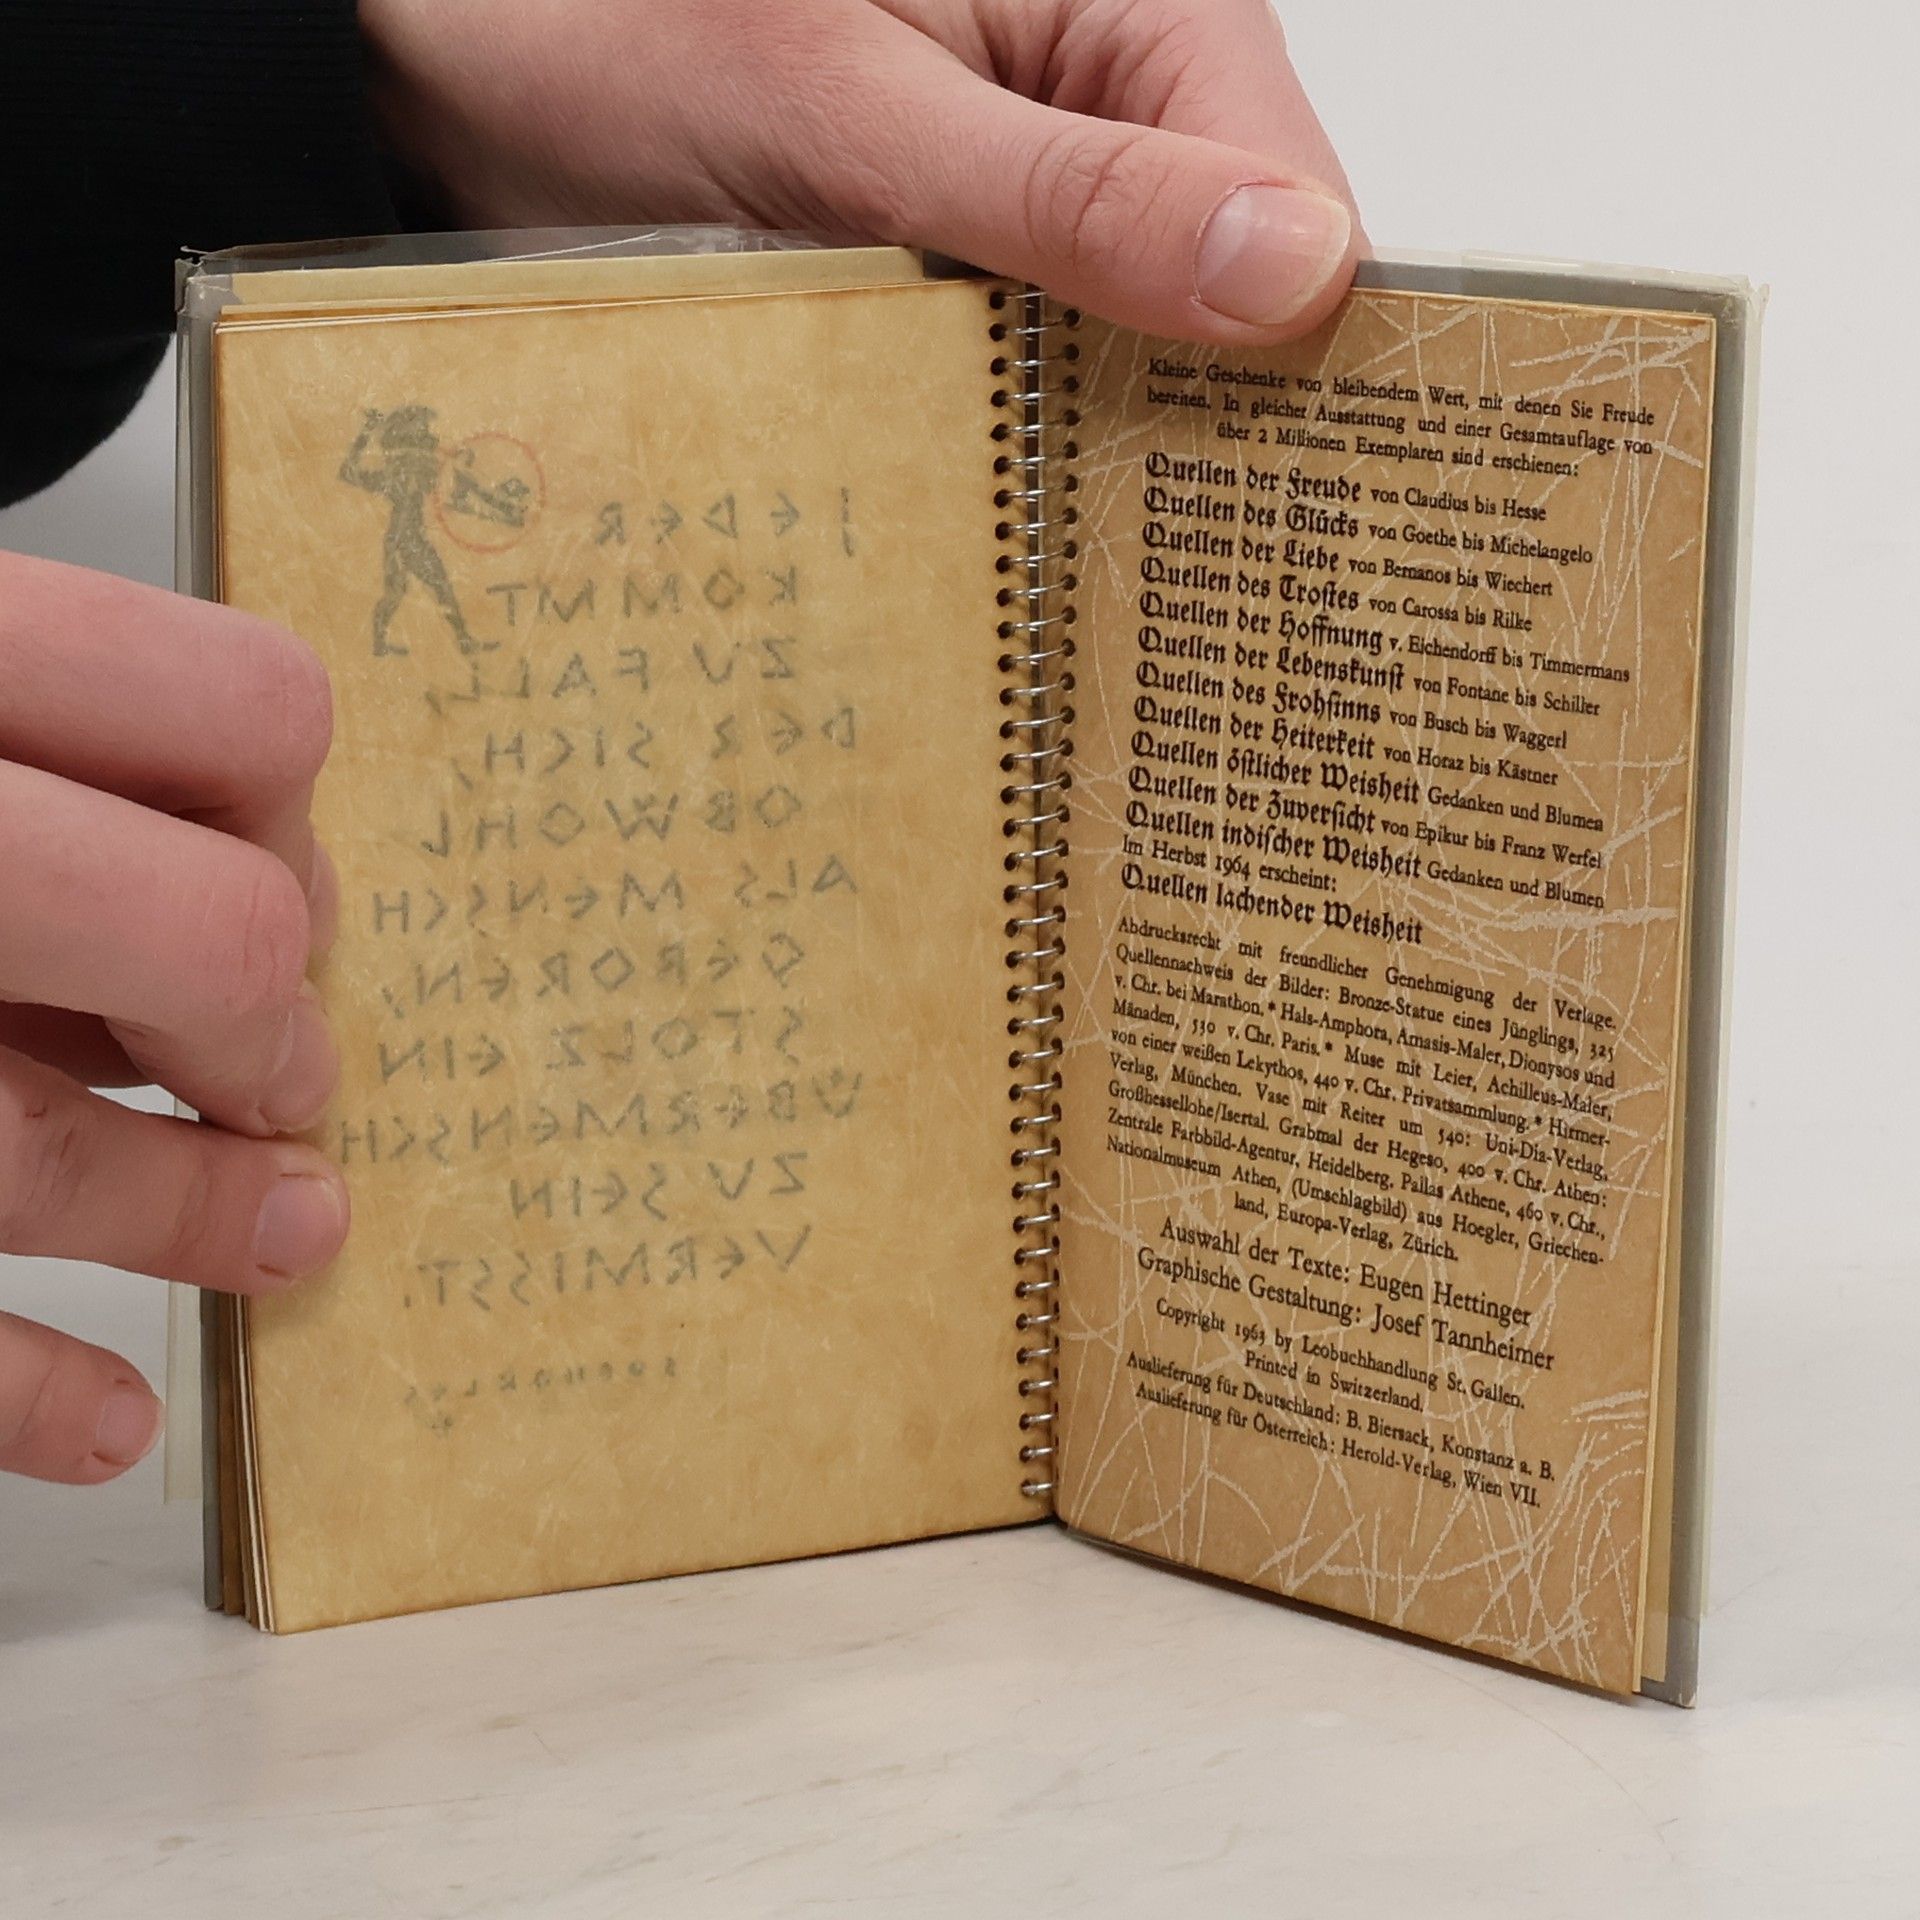 JEDER
KOMMT
ZU FALL,
DER SICH,
OBWOHL
ALS MENSCH
GEBOREN,
STOLZ EIN
ÜBERMENSCH
ZU SEIN
VERMISST.
SOPHOKLES
Kleine Geschenke von bleibendem Wert, mit denen Sie Freude
bereiten. In gleicher Ausstattung und einer Gesamtauflage von
über 2 Millionen Exemplaren sind erschienen:
Quellen der Freude von Claudius bis Hesse
Quellen des Glücks von Goethe bis Michelangelo
Quellen der Liebe von Bernanos bis Wiechert
Quellen des Trostes von Carossa bis Rilke
Quellen der Hoffnung v. Eichendorff bis Timmermans
Quellen der Lebenskunst von Fontane bis Schiller
Quellen des Frohsinns von Busch bis Waggerl
Quellen der Heiterkeit von Horaz bis Kästner
Quellen östlicher Weisheit Gedanken und Blumen
Quellen der Zuversicht von Epikur bis Franz Werfel
Quellen indischer Weisheit Gedanken und Blumen
Im Herbst 1964 erscheint:
Quellen lachender Weisheit
Abdrucksrecht mit freundlicher Genehmigung der Verlage.
Quellennachweis der Bilder: Bronze-Statue eines Jünglings, 325
v. Chr. bei Marathon. * Hals-Amphora, Amasis-Maler, Dionysos und
Mänaden, 530 v. Chr. Paris. * Muse mit Leier, Achilleus-Maler,
von einer weißen Lekythos, 440 v. Chr. Privatsammlung. * Hirmer-
Verlag, München. Vase mit Reiter um 540: Uni-Dia-Verlag,
Großhessellohe/Isertal. Grabmal der Hegeso, 400 v. Chr. Athen:
Zentrale Farbbild-Agentur, Heidelberg. Pallas Athene, 460 v. Chr.,
Nationalmuseum Athen, (Umschlagbild) aus Hoegler, Griechen-
land, Europa-Verlag, Zürich.
Auswahl der Texte: Eugen Hettinger
Graphische Gestaltung: Josef Tannheimer
Copyright 1963 by Leobuchhandlung St. Gallen.
Printed in Switzerland.
Auslieferung für Deutschland: B. Biersack, Konstanz a. B.
Auslieferung für Österreich: Herold-Verlag, Wien VII.